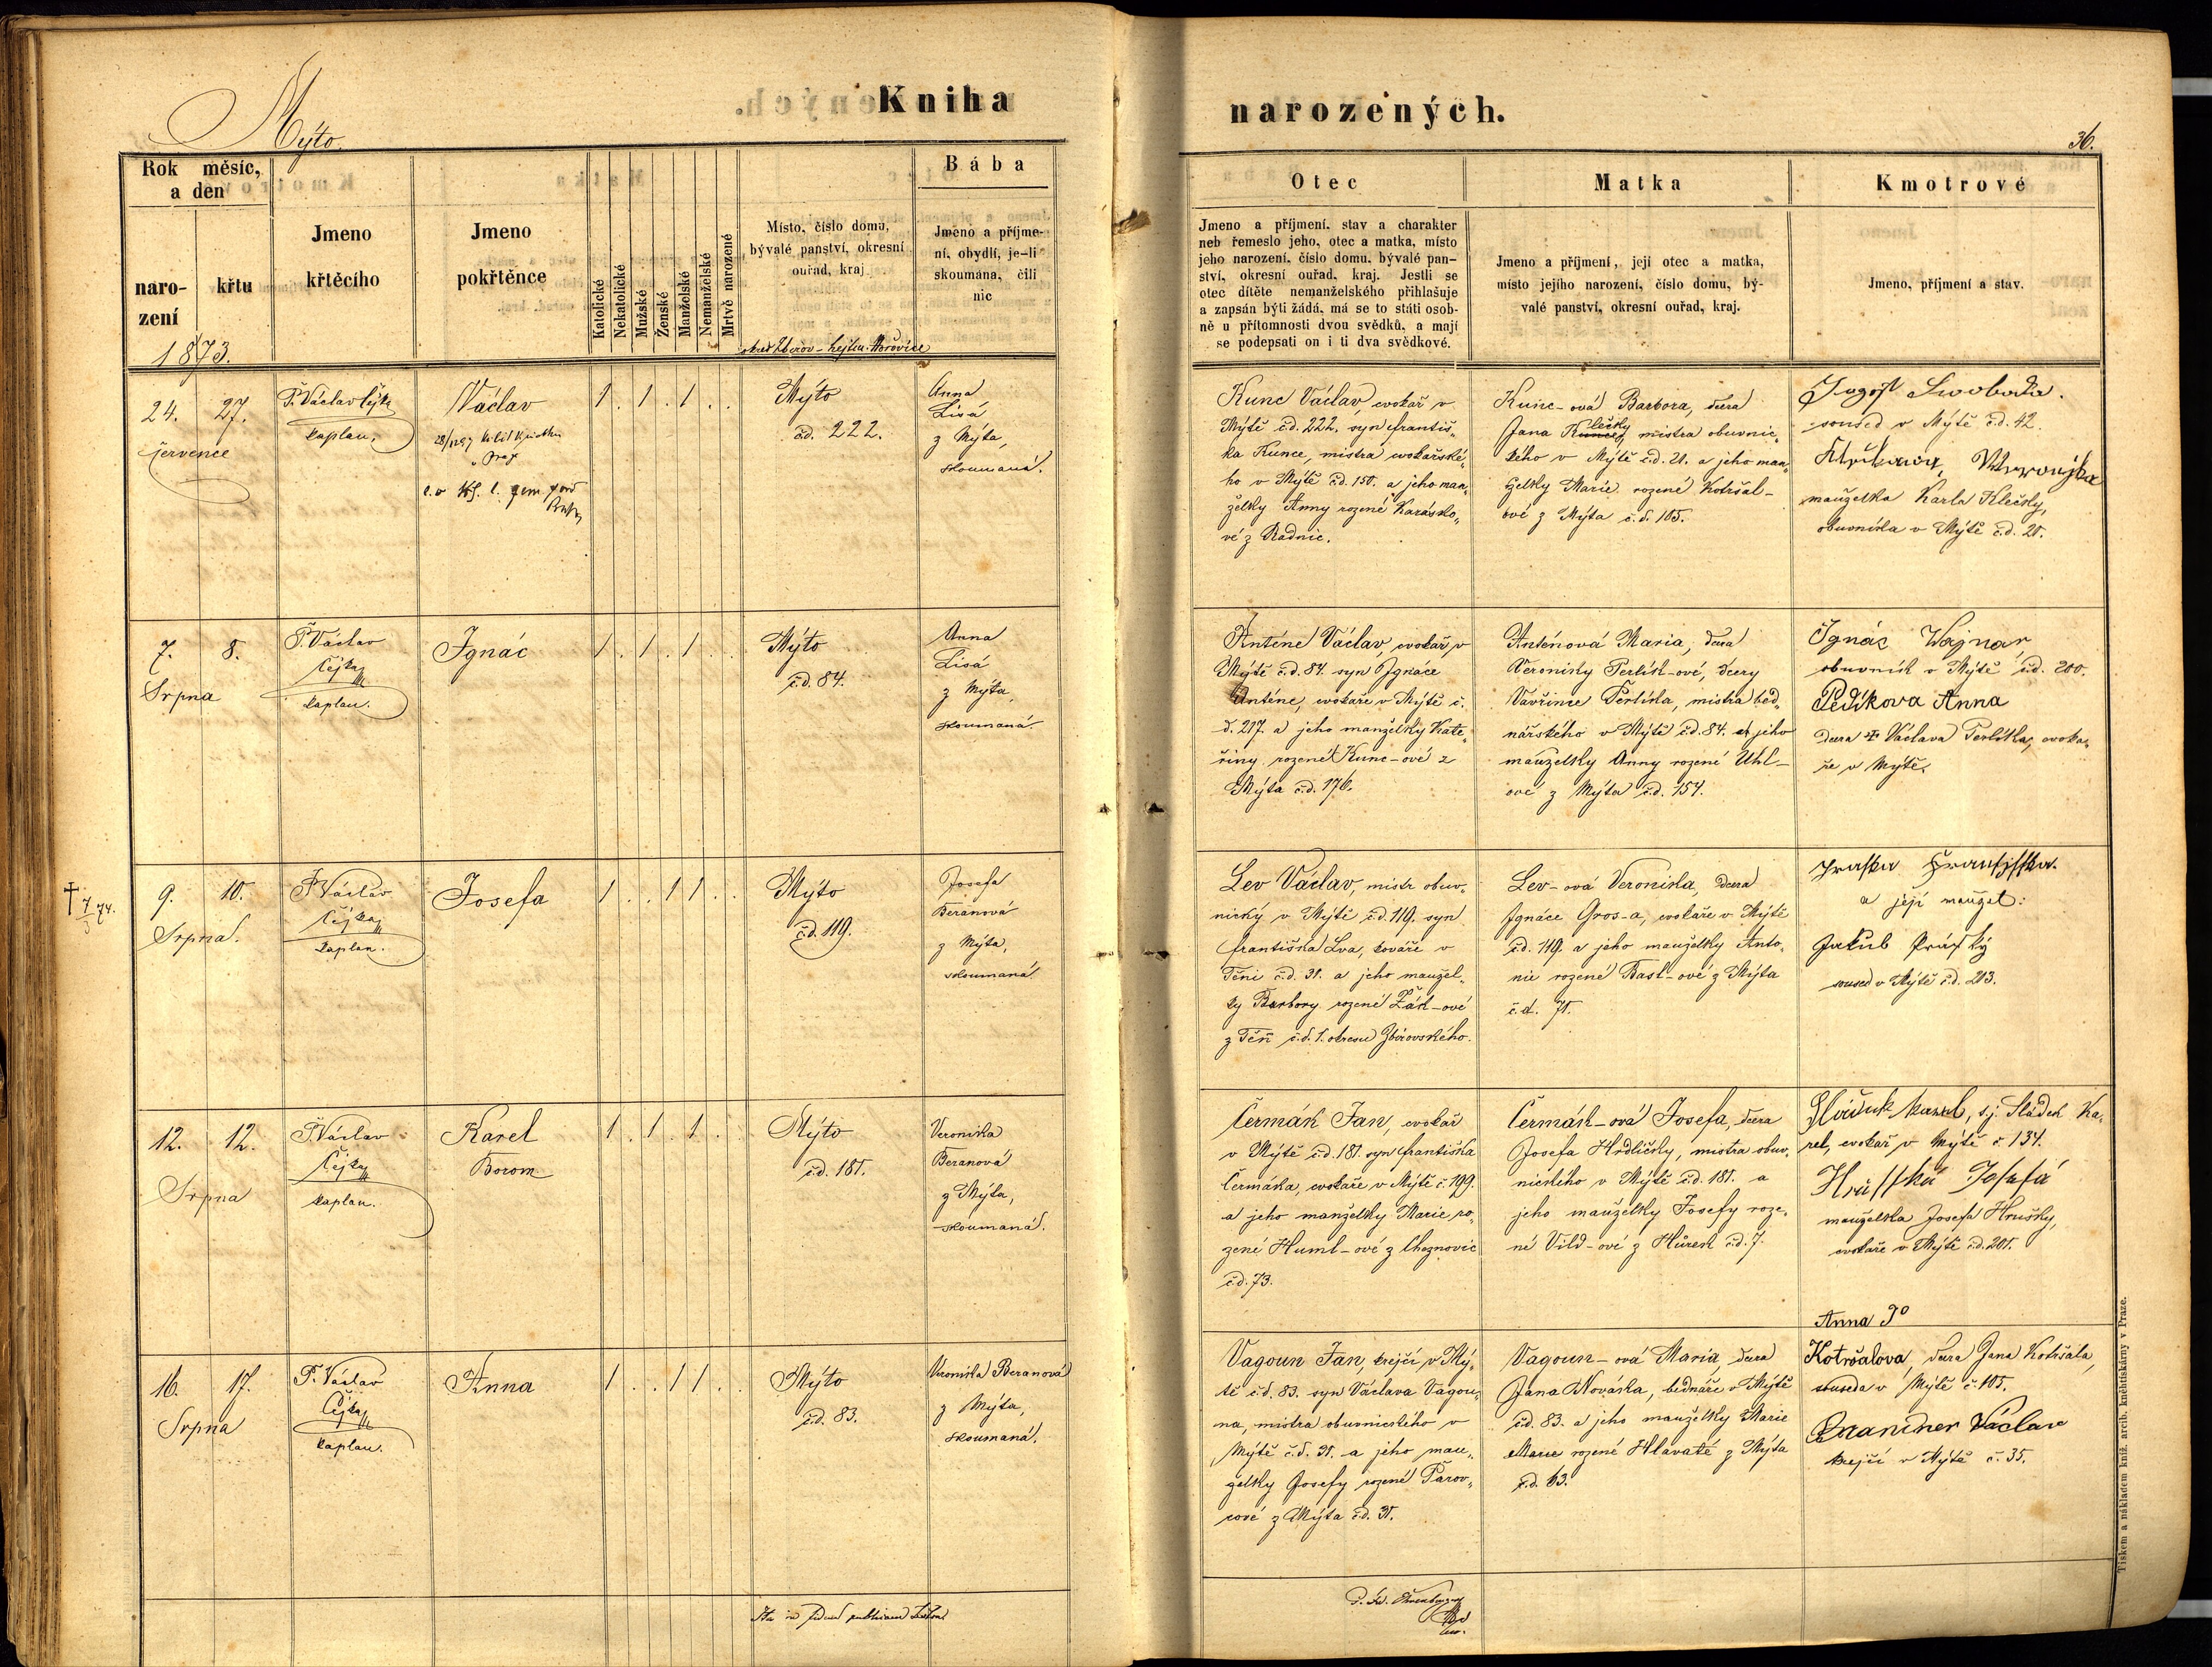 Mýto.
Kniha
narozených.
36.
Rok měsíc,
a den
naro-
zení
křtu
1873.
Jmeno
křtěcího
Jmeno
pokřtěnce
Katolické
Nekatolické
Mužské
Ženské
Manželské
Nemanželské
Mrtvě narozené
Místo, číslo domu,
bývalé panství, okresní
ouřad, kraj
okres Zbirov - hejtm. Hořovice
Bába
Jmeno a příjme-
ní, obydlí, je-li
skoumána, čili
nic
Otec
Jmeno a příjmení, stav a charakter
neb řemeslo jeho, otec a matka, místo
jeho narození, číslo domu, bývalé pan-
ství, okresní ouřad, kraj. Jestli se
otec dítěte nemanželského přihlašuje
a zapsán býti žádá, má se to státi osob-
ně u přítomnosti dvou svědků, a mají
se podepsati on i ti dva svědkové.
Matka
Jmeno a příjmení, její otec a matka,
místo jejího narození, číslo domu, bý-
valé panství, okresní ouřad, kraj.
Kmotrové
Jmeno, příjmení a stav.
24. 27.
července
P. Václav Čejka
kaplan.
Václav
1 . 1 . 1 . .
Mýto
čd. 222.
Anna
Lisá
z Mýta,
skoumaná.
Kunc Václav, cvokař v
Mýtě čd. 222. syn Františ„
ka Kunce, mistra cvokařské„
ho v Mýtě čd. 150. a jeho man„
želky Anny rozené Karásko„
vé z Radnic.
Kunc-ová Barbora, dcera
Jana Klečky mistra obuvnic„
kého v Mýtě čd. 21. a jeho man„
želky Marie rozené Kotršal-
ové z Mýta č.d. 105.
Josef Swoboda.
soused v Mýtě č.d. 42.
manželka Karla Klečky,
obuvníka v Mýtě č.d. 21.
7. 8.
Srpna
P. Václav
Čejka
kaplan.
Ignác
1 . 1 . 1 . .
Mýto
č.d. 84.
Anna
Lisá
z Mýta,
skoumaná.
Anténe Václav, cvokař v
Mýtě č.d. 84. syn Ignáce
Anténe, cvokaře v Mýtě č.
d. 217. a jeho manželky Kate„
řiny rozené Kunc-ové z
Mýta č.d. 176.
Anténová Maria, dcera
Veroniky Perlík-ové, dcery
Vavřince Perlíka, mistra bed„
nářského v Mýtě č.d. 84. a jeho
manželky Anny rozené Uhl-
ové z Mýta č.d. 154.
Ignác Wajnar,
obuvník v Mýtě č.d. 200.
Pedikova Anna
dcera Václava Perlíka, cvoka„
ře v Mýtě.
† 7/3 74.
9. 10.
Srpna.
P. Václav
Čejka
kaplan.
Josefa
1 . . 1 1 . .
Mýto
č.d. 119.
Josefa
Beranová
z Mýta,
skoumaná.
Lev Václav, mistr obuv„
nický v Mýtě č.d. 119. syn
Františka Lva, kováře v
Těni č.d. 31. a jeho manžel„
ky Barbory rozené Žák-ové
z Těň č.d. 1. okresu Zbirovského.
Lev-ová Veronika, dcera
Ignáce Gros-a, cvokaře v Mýtě
č.d. 119. a jeho manželky Anto„
nie rozené Basl-ové z Mýta
č.d. 71.
a její manžel:
Jakub
soused v Mýtě č.d. 203.
12. 12.
Srpna
P. Václav
Čejka
kaplan.
Karel
Borom
1 . 1 . 1 . .
Mýto
č.d. 181.
Veronika
Beranová
z Mýta,
skoumaná.
Čermák Jan, cvokař
v Mýtě č.d. 181. syn Františka
Čermáka, cvokaře v Mýtě č. 199.
a jeho manželky Marie ro„
zené Huml-ové z Cheznovic
č.d. 73.
Čermák-ová Josefa, dcera
Josefa Hrdličky, mistra obuv„
nického v Mýtě č.d. 181. a
jeho manželky Josefy roze„
né Vild-ové z Hůrek č.d. 7.
Sladek Karel, s.j. Sládek Ka„
rel, cvokař v Mýtě č. 134.
Hrusska Josefa
manželka Josefa Hrušky,
cvokaře v Mýtě č.d. 201.
16. 17.
Srpna
P. Václav
Čejka
kaplan.
Anna
1 . . 1 1 . .
Mýto
č.d. 83.
Veronika Beranová
z Mýta,
skoumaná.
Vagoun Jan, krejčí v Mý„
tě č.d. 83. syn Václava Vagou„
na, mistra obuvnického v
Mýtě č.d. 31. a jeho man„
želky Josefy rozené Parov„
cové z Mýta č.d. 31.
Vagoun-ová Maria, dcera
Jana Nováka, bednáře v Mýtě
č.d. 83. a jeho manželky Marie
Marie rozené Hlavaté z Mýta
č.d. 63.
Anna
Kotršalova, dcera Jana Kotršala,
souseda v Mýtě č. 105.
Václav
krejčí v Mýtě č. 35.
Tiskem a nákladem kníž. arcib. knihtiskárny v Praze.